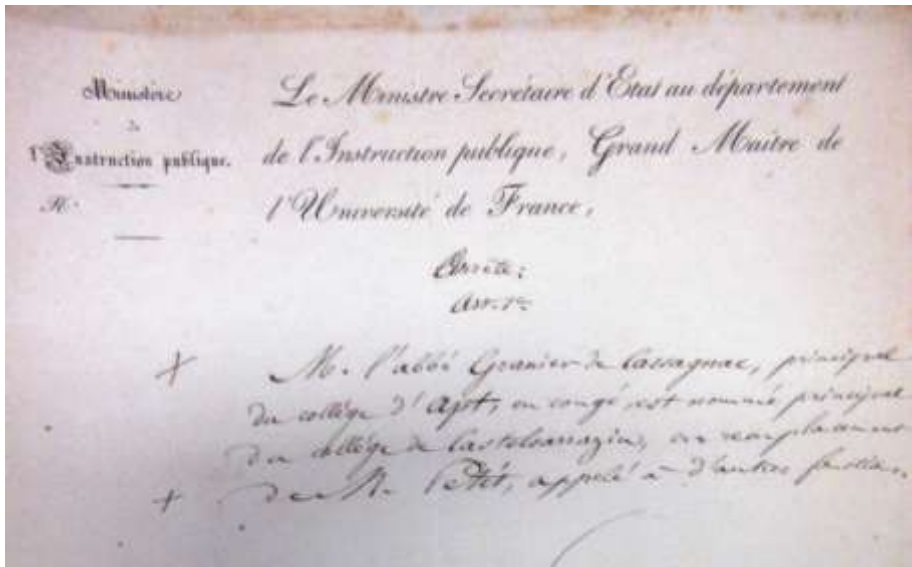 Ministère
de
l'Instruction publique.
N.
Le Ministre Secrétaire d'Etat au département
de l'Instruction publique, Grand Maître de
l'Université de France,
Arrête:
Art. 1er
M. l'abbé Granier de Cassagnac, principal
du collège d'Apt, en congé, est nommé principal
du collège de Castelsarrazin, en remplacement
de M. Petit, appelé à d'autres fonctions.